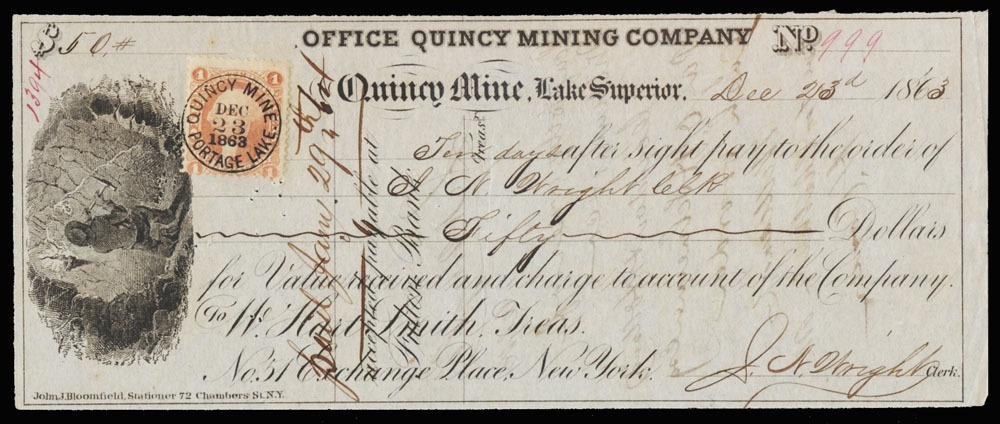 $50#
OFFICE QUINCY MINING COMPANY No. 999
1394
1 1
QUINCY MINE.
DEC
23
1863
PORTAGE LAKE.
1 1
Quincy Mine, Lake Superior. Dec 23d 1863
Ten days after sight pay to the order of
J. N. Wright Clk
Fifty Dollars
for Value received and charge to account of the Company.
To Wm. Hart Smith, Treas.
No. 51 Exchange Place, New York. J. N. Wright Clerk.
Jany 29th 64
payable at
Bank
Treas.
John J. Bloomfield, Stationer 72 Chambers St. N.Y.